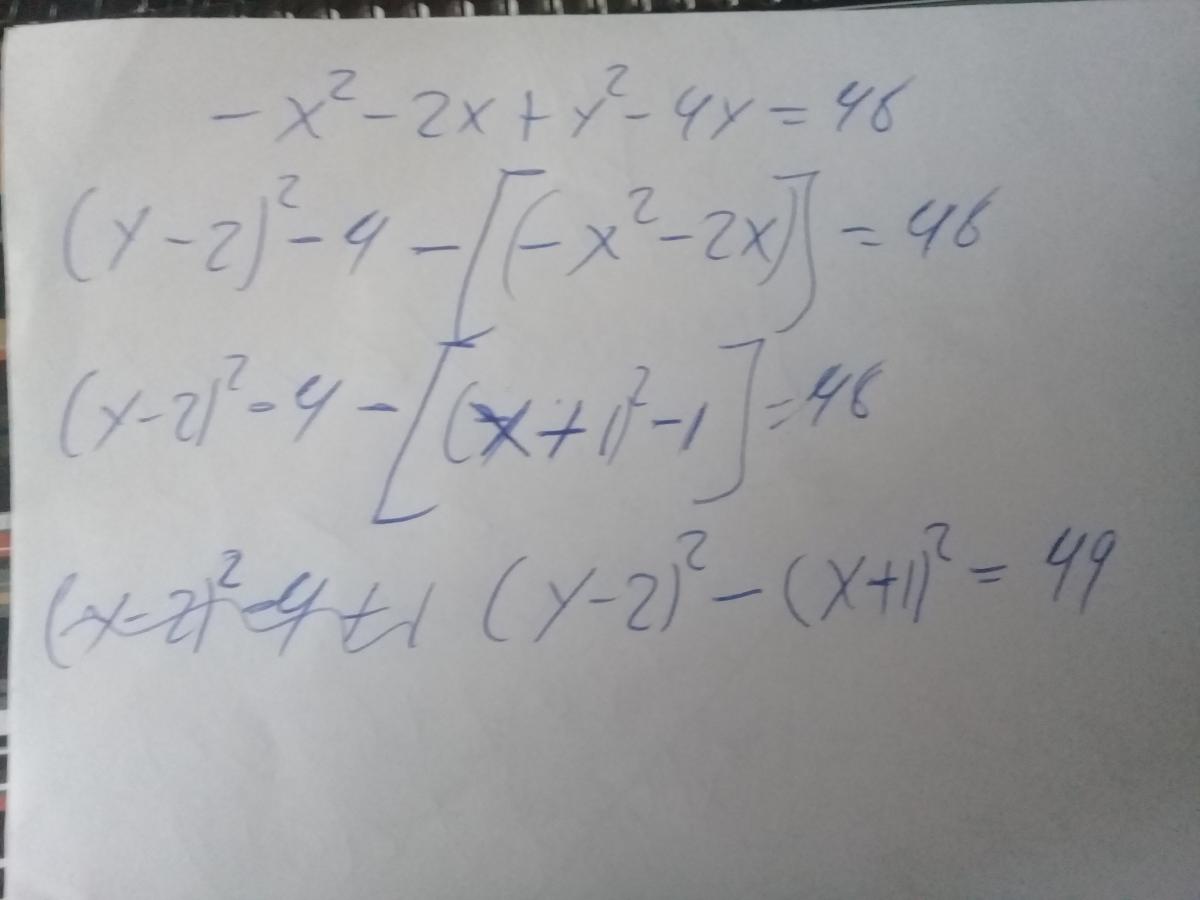 -x²-2x+y²-4y=46
(y-2)²-4-[(-x²-2x)]=46
(y-2)²-4-[(x+1)²-1]=46
(y-2)²-4+1 (y-2)²-(x+1)²=49